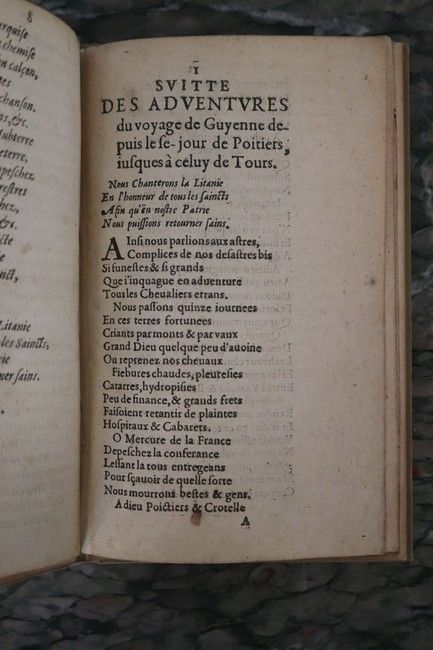 8
urquise
chemise
n calçon,
chanson.
ns,&c.
ubterre
eterre,
epeschez.
restres
&c.
inct,
Litanie
les Saincts,
rie
rner sains.
1
SVITTE
DES ADVENTVRES
du voyage de Guyenne de-
puis le se-jour de Poitiers,
iusques à celuy de Tours.
Nous Chanterons la Litanie
En l'honneur de tous les saincts
Afin qu'en nostre Patrie
Nous puissions retourner sains.
AInsi nous parlions aux astres,
Complices de nos desastres bis
Si funestes & si grands
Que i'inquague en aduenture
Tous les Cheualiers errans.
Nous passons quinze iournees
En ces terres fortunees
Criants par monts & par vaux
Grand Dieu quelque peu d'auoine
Ou reprenez nos cheuaux
Fiebures chaudes, pleuresies
Catarres, hydropisies
Peu de finance, & grands frets
Faisoient retantir de plaintes
Hospitaux & Cabarets.
O Mercure de la France
Depeschez la conferance
Lessant la tous entregeans
Pour sçauoir de quelle sorte
Nous mourrons bestes & gens.
Adieu Poictiers & Crotelle
A